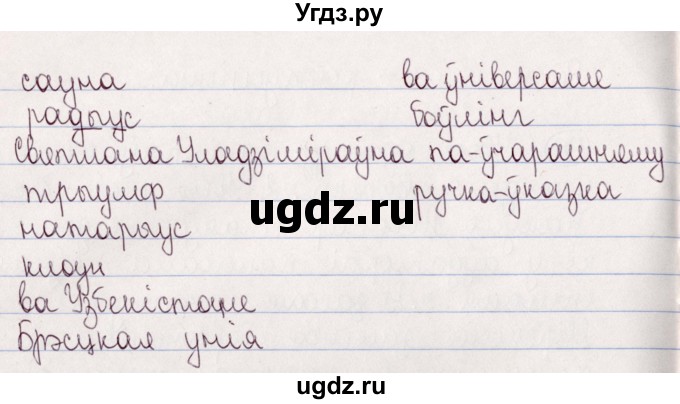 Угдз.ру
сауна ва ўніверсаме
радыус боўлінг
Святлана Уладзіміраўна па-ўчарашняму
трыумф ручка-ўказка
ugdz.ru
натарыус
клоун
ва Узбекістане
Брэсцкая унія
ugdz.ru